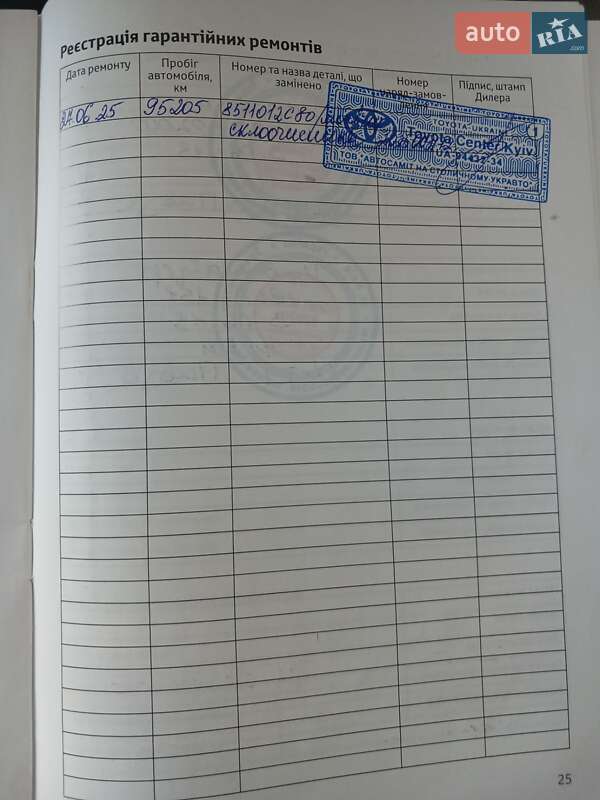 auto RIA .com
Реєстрація гарантійних ремонтів
Дата ремонту
Пробіг автомобіля, км
Номер та назва деталі, що замінено
Номер наряд-замов-
Підпис, штамп Дилера
06 25 95205 8511012C80
TOYOTA-UKRAINE 1
Toyota Center Kyiv
ТОВ "АВТОСАМІТ НА СТОЛИЧНОМУ УКРАВТО"
25